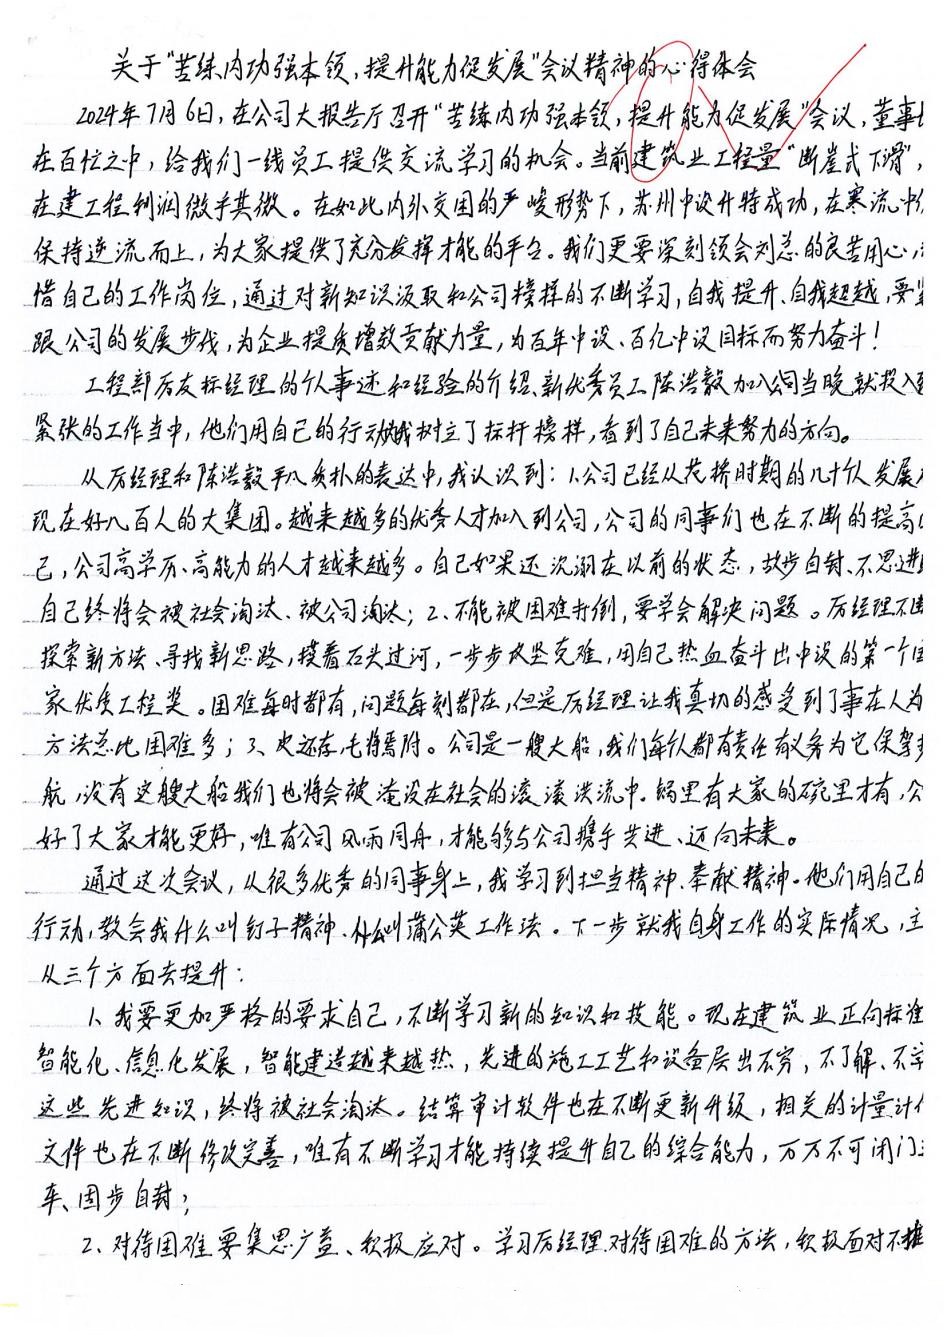 关于“苦练内功强本领,提升能力促发展”会议精神的心得体会
2024年7月6日,在公司大报告厅召开“苦练内功强本领,提升能力促发展”会议,董事
在百忙之中,给我们一线员工提供交流学习的机会。当前建筑业工程量“断崖式下滑”,
在建工程利润微乎其微。在如此内外交困的严峻形势下,苏州中设升特成功,在寒流中
保持逆流而上,为大家提供了充分发挥才能的平台。我们更要深刻领会刘总的良苦用心,
惜自己的工作岗位,通过对新知识汲取和公司榜样的不断学习,自我提升、自我超越,要
跟公司的发展步伐,为企业提质增效贡献力量,为百年中设、百亿中设目标而努力奋斗!
工程部厉友标经理的个人事迹和经验的介绍、新优秀员工陈浩毅加入公司当晚就投入到
紧张的工作当中,他们用自己的行动树立了标杆榜样,看到了自己未来努力的方向。
从厉经理和陈浩毅平凡质朴的表达中,我认识到:1、公司已经从花桥时期的几十个人发展
现在好几百人的大集团。越来越多的优秀人才加入到公司,公司的同事们也在不断的提高
己,公司高学历、高能力的人才越来越多。自己如果还沉溺在以前的状态,故步自封、不思进
自己终将会被社会淘汰、被公司淘汰;2、不能被困难打倒,要学会解决问题。厉经理不断
探索新方法、寻找新思路,摸着石头过河,一步步攻坚克难,用自己热血奋斗出中设的第一个国
家优质工程奖。困难每时都有,问题每刻都在,但是厉经理让我真切的感受到了事在人为
方法总比困难多;3、皮还存,毛将焉附。公司是一艘大船,我们每个人都有责任有义务为它保驾
航,没有这艘大船我们也将会被淹没在社会的滚滚洪流中。锅里有大家的碗里才有,公
好了大家才能更好,唯有公司风雨同舟,才能够与公司携手共进、迈向未来。
通过这次会议,从很多优秀的同事身上,我学习到担当精神、奉献精神。他们用自己的
行动,教会我什么叫钉子精神、什么叫蒲公英工作法。下一步就我自身工作的实际情况,主
从三个方面去提升:
1、我要更加严格的要求自己,不断学习新的知识和技能。现在建筑业正向标准
智能化、信息化发展,智能建造越来越热,先进的施工工艺和设备层出不穷,不了解、不学
这些先进知识,终将被社会淘汰。结算审计软件也在不断更新升级,相关的计量计价
文件也在不断修改完善,唯有不断学习才能持续提升自己的综合能力,万万不可闭门
车、固步自封;
2、对待困难要集思广益、积极应对。学习厉经理对待困难的方法,积极面对不推